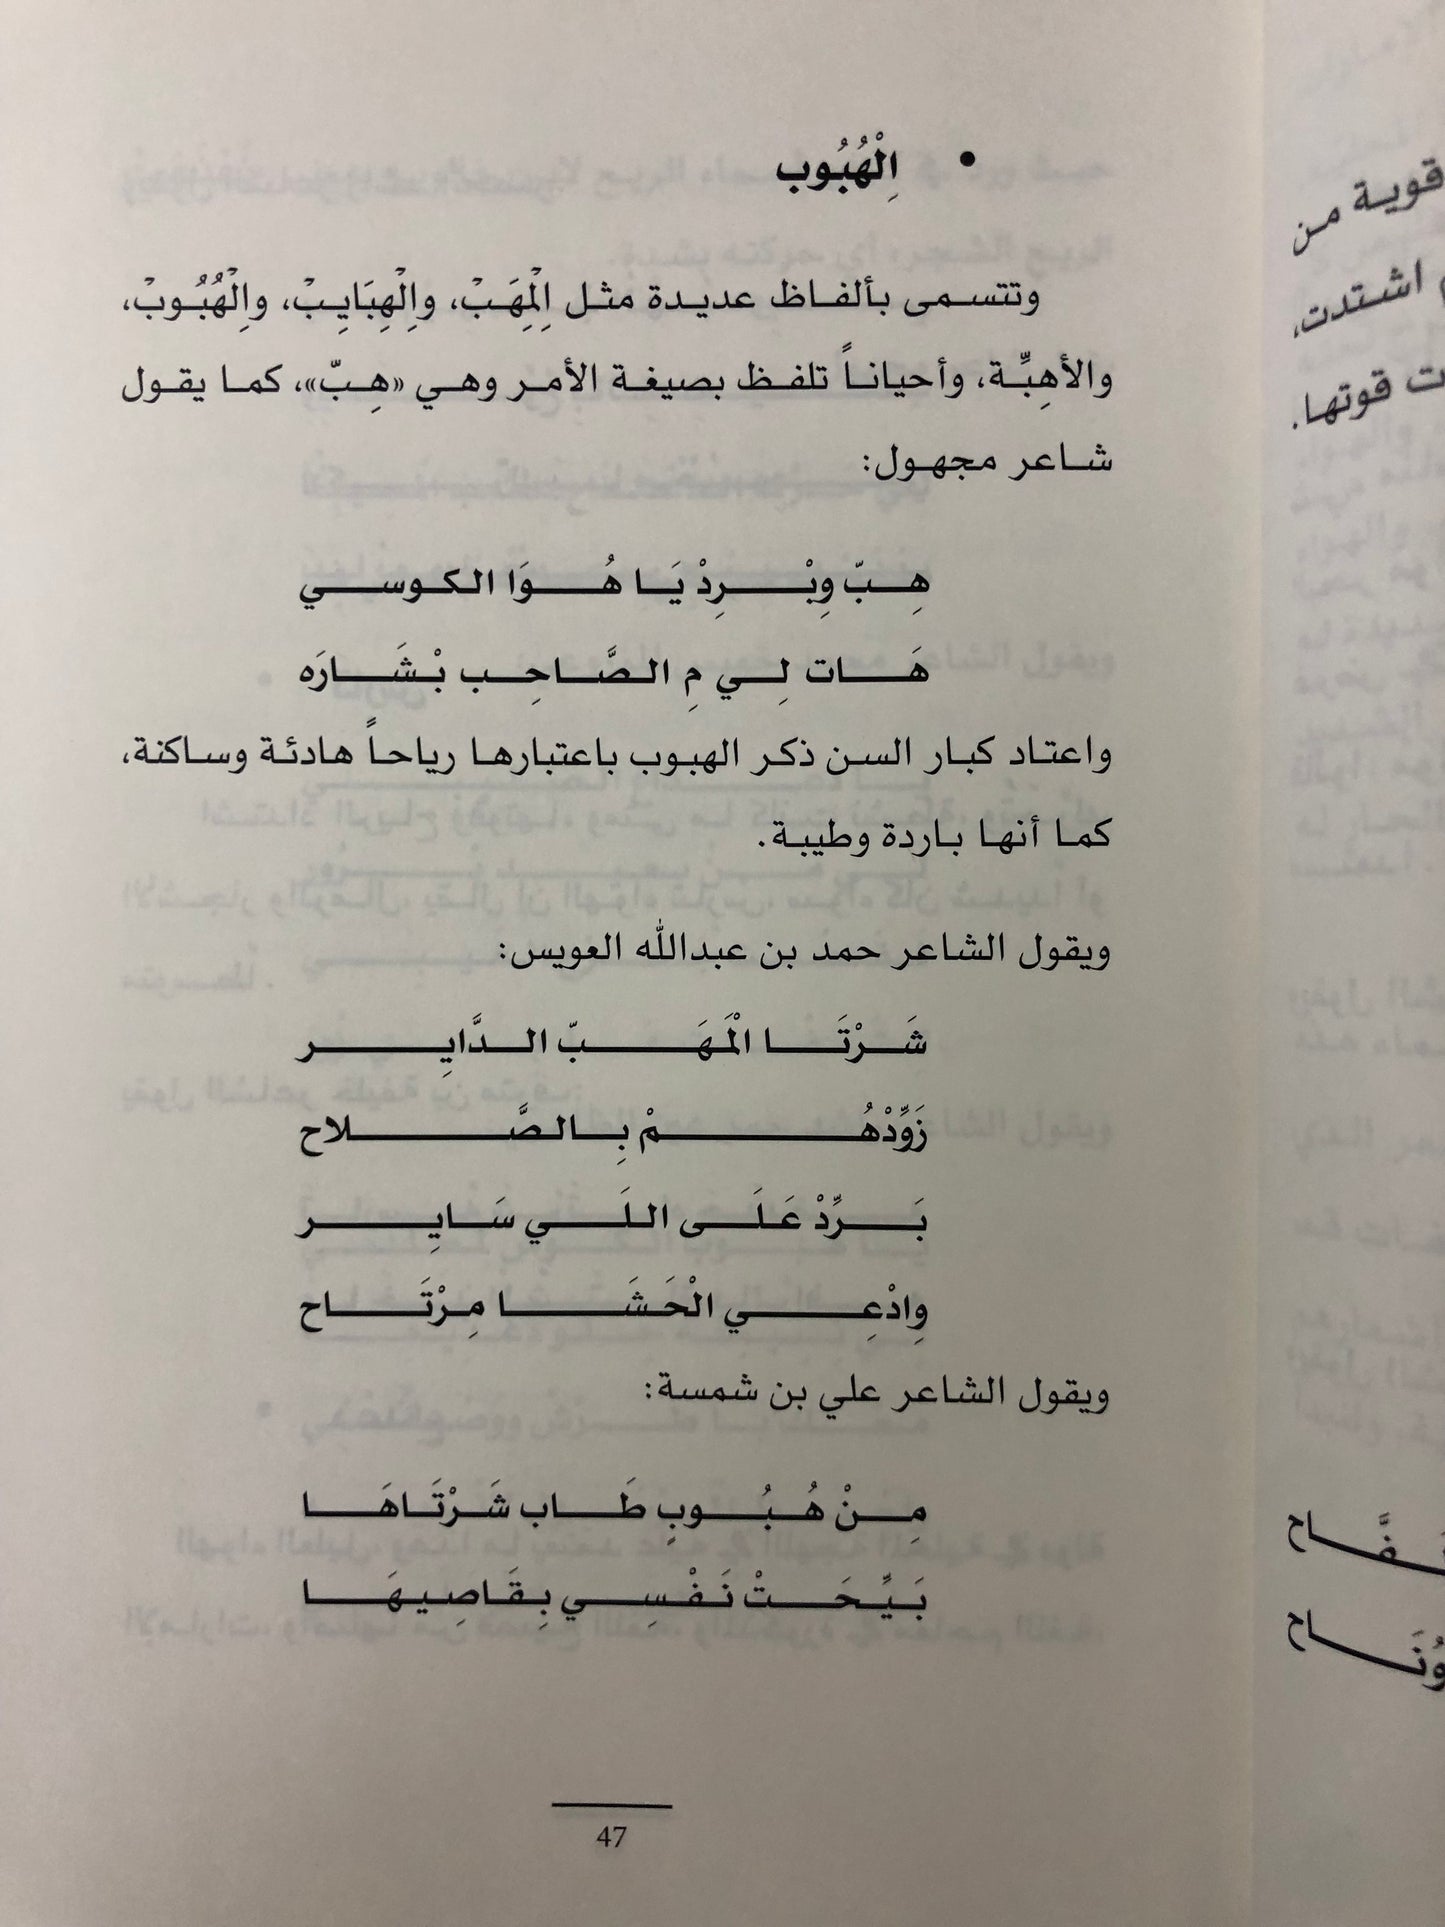 • اِلْهُبُوب
وتتسمى بألفاظ عديدة مثل اِلْمِهَبْ، واِلْهِبَايِبْ، واِلْهُبُوبْ،
والأهِبِّة، وأحياناً تلفظ بصيغة الأمر وهي «هِبّ»، كما يقول
شاعر مجهول:
هِبّ وِبْرِدْ يَا هُوَا الكوسي
هَات لِي مِ الصَّاحِب بْشَارَه
واعتاد كبار السن ذكر الهبوب باعتبارها رياحاً هادئة وساكنة،
كما أنها باردة وطيبة.
ويقول الشاعر حمد بن عبدالله العويس:
شَرْتَا الْمَهَبّ الدَّايِر
زَوِّدْهُمْ بِالصَّلاح
بَرِّدْ عَلَى اللَي سَايِر
وِادْعِي الْحَشَا مِرْتَاح
ويقول الشاعر علي بن شمسة:
مِنْ هُبُوبٍ طَاب شَرْتَاهَا
بَيِّحَتْ نَفْسِي بِقَاصِيهَا
47
قوية من
اشتدت،
ت قوتها.